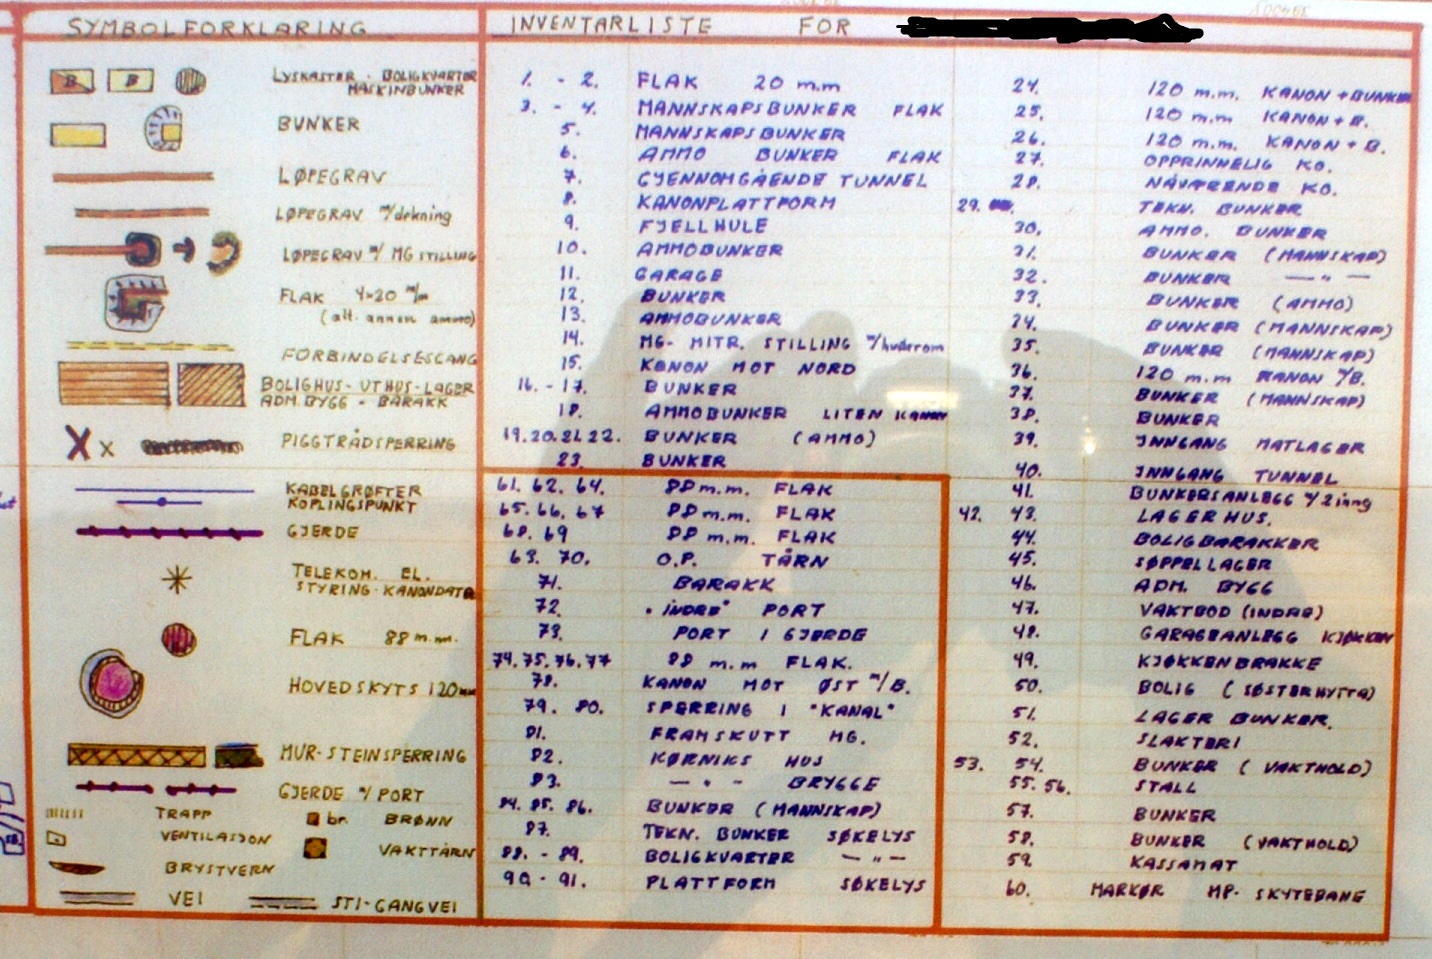 SYMBOLFORKLARING
LYSKASTER - BOLIGKVARTER
MASKINBUNKER
B
B
BUNKER
LØPEGRAV
LØPEGRAV m/dekning
LØPEGRAV m/ MG STILLING
FLAK 4×20 m/m
(alt. annen ammo)
FORBINDELSESGANG
BOLIGHUS - UTHUS - LAGER
ADM. BYGG - BARAKK
PIGGTRÅDSPERRING
KABELGRØFTER
KOPLINGSPUNKT
GJERDE
TELEKOM. EL.
STYRING - KANONDATA
FLAK 88 m.m.
HOVEDSKYTS 120 mm
MUR- STEINSPERRING
GJERDE m/ PORT
TRAPP
br. BRØNN
VENTILASJON
VAKTTÅRN
BRYSTVERN
VEI
STI - GANGVEI
INVENTARLISTE FOR
1. - 2. FLAK 20 m.m
3. - 4. MANNSKAPSBUNKER FLAK
5. MANNSKAPSBUNKER
6. AMMO BUNKER FLAK
7. GJENNOMGÅENDE TUNNEL
8. KANONPLATTFORM
9. FJELLHULE
10. AMMOBUNKER
11. GARAGE
12. BUNKER
13. AMMOBUNKER
14. MG- MITR. STILLING m/hulerom
15. KANON MOT NORD
16. - 17. BUNKER
18. AMMOBUNKER LITEN KANON
19. 20. 21. 22. BUNKER (AMMO)
23. BUNKER
61. 62. 64. 88 m.m. FLAK
65. 66. 67 88 m.m. FLAK
68. 69 88 m.m. FLAK
63. 70. O.P. TÅRN
71. BARAKK
72. "INDRE" PORT
73. PORT I GJERDE
74. 75. 76. 77 88 m.m FLAK.
78. KANON MOT ØST m/B.
79. 80. SPERRING I "KANAL"
81. FRAMSKUTT MG.
82. KØRNIKS HUS
83. — " — BRYGGE
84. 85. 86. BUNKER (MANNSKAP)
87. TEKN. BUNKER SØKELYS
88. - 89. BOLIGKVARTER — " —
90 - 91. PLATTFORM SØKELYS
24. 120 m.m. KANON + BUNKER
25. 120 m.m KANON + B.
26. 120 m.m. KANON + B.
27. OPPRINNELIG KO.
28. NÅVÆRENDE KO.
29. TEKN. BUNKER
30. AMMO. BUNKER
31. BUNKER (MANNSKAP)
32. BUNKER — " —
33. BUNKER (AMMO)
34. BUNKER (MANNSKAP)
35. BUNKER (MANNSKAP)
36. 120 m.m KANON m/B.
37. BUNKER (MANNSKAP)
38. BUNKER
39. INNGANG MATLAGER
40. INNGANG TUNNEL
41. BUNKERSANLEGG m/2 inng
42. 43. LAGERHUS.
44. BOLIGBARAKKER
45. SØPPELLAGER
46. ADM. BYGG
47. VAKTBOD (INDRE)
48. GARASJEANLEGG KJØKKEN
49. KJØKKENBRAKKE
50. BOLIG (SØSTERHYTTA)
51. LAGER BUNKER.
52. SLAKTERI
53. 54. BUNKER (VAKTHOLD)
55. 56. STALL
57. BUNKER
58. BUNKER (VAKTHOLD)
59. KASSAMAT
60. MARKØR MP- SKYTEBANE